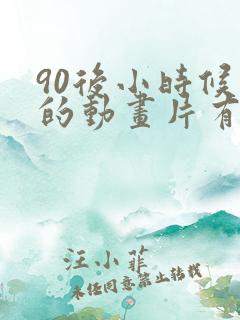 90後小時候
的動畫片有
汪小菲
未經同意禁止轉載